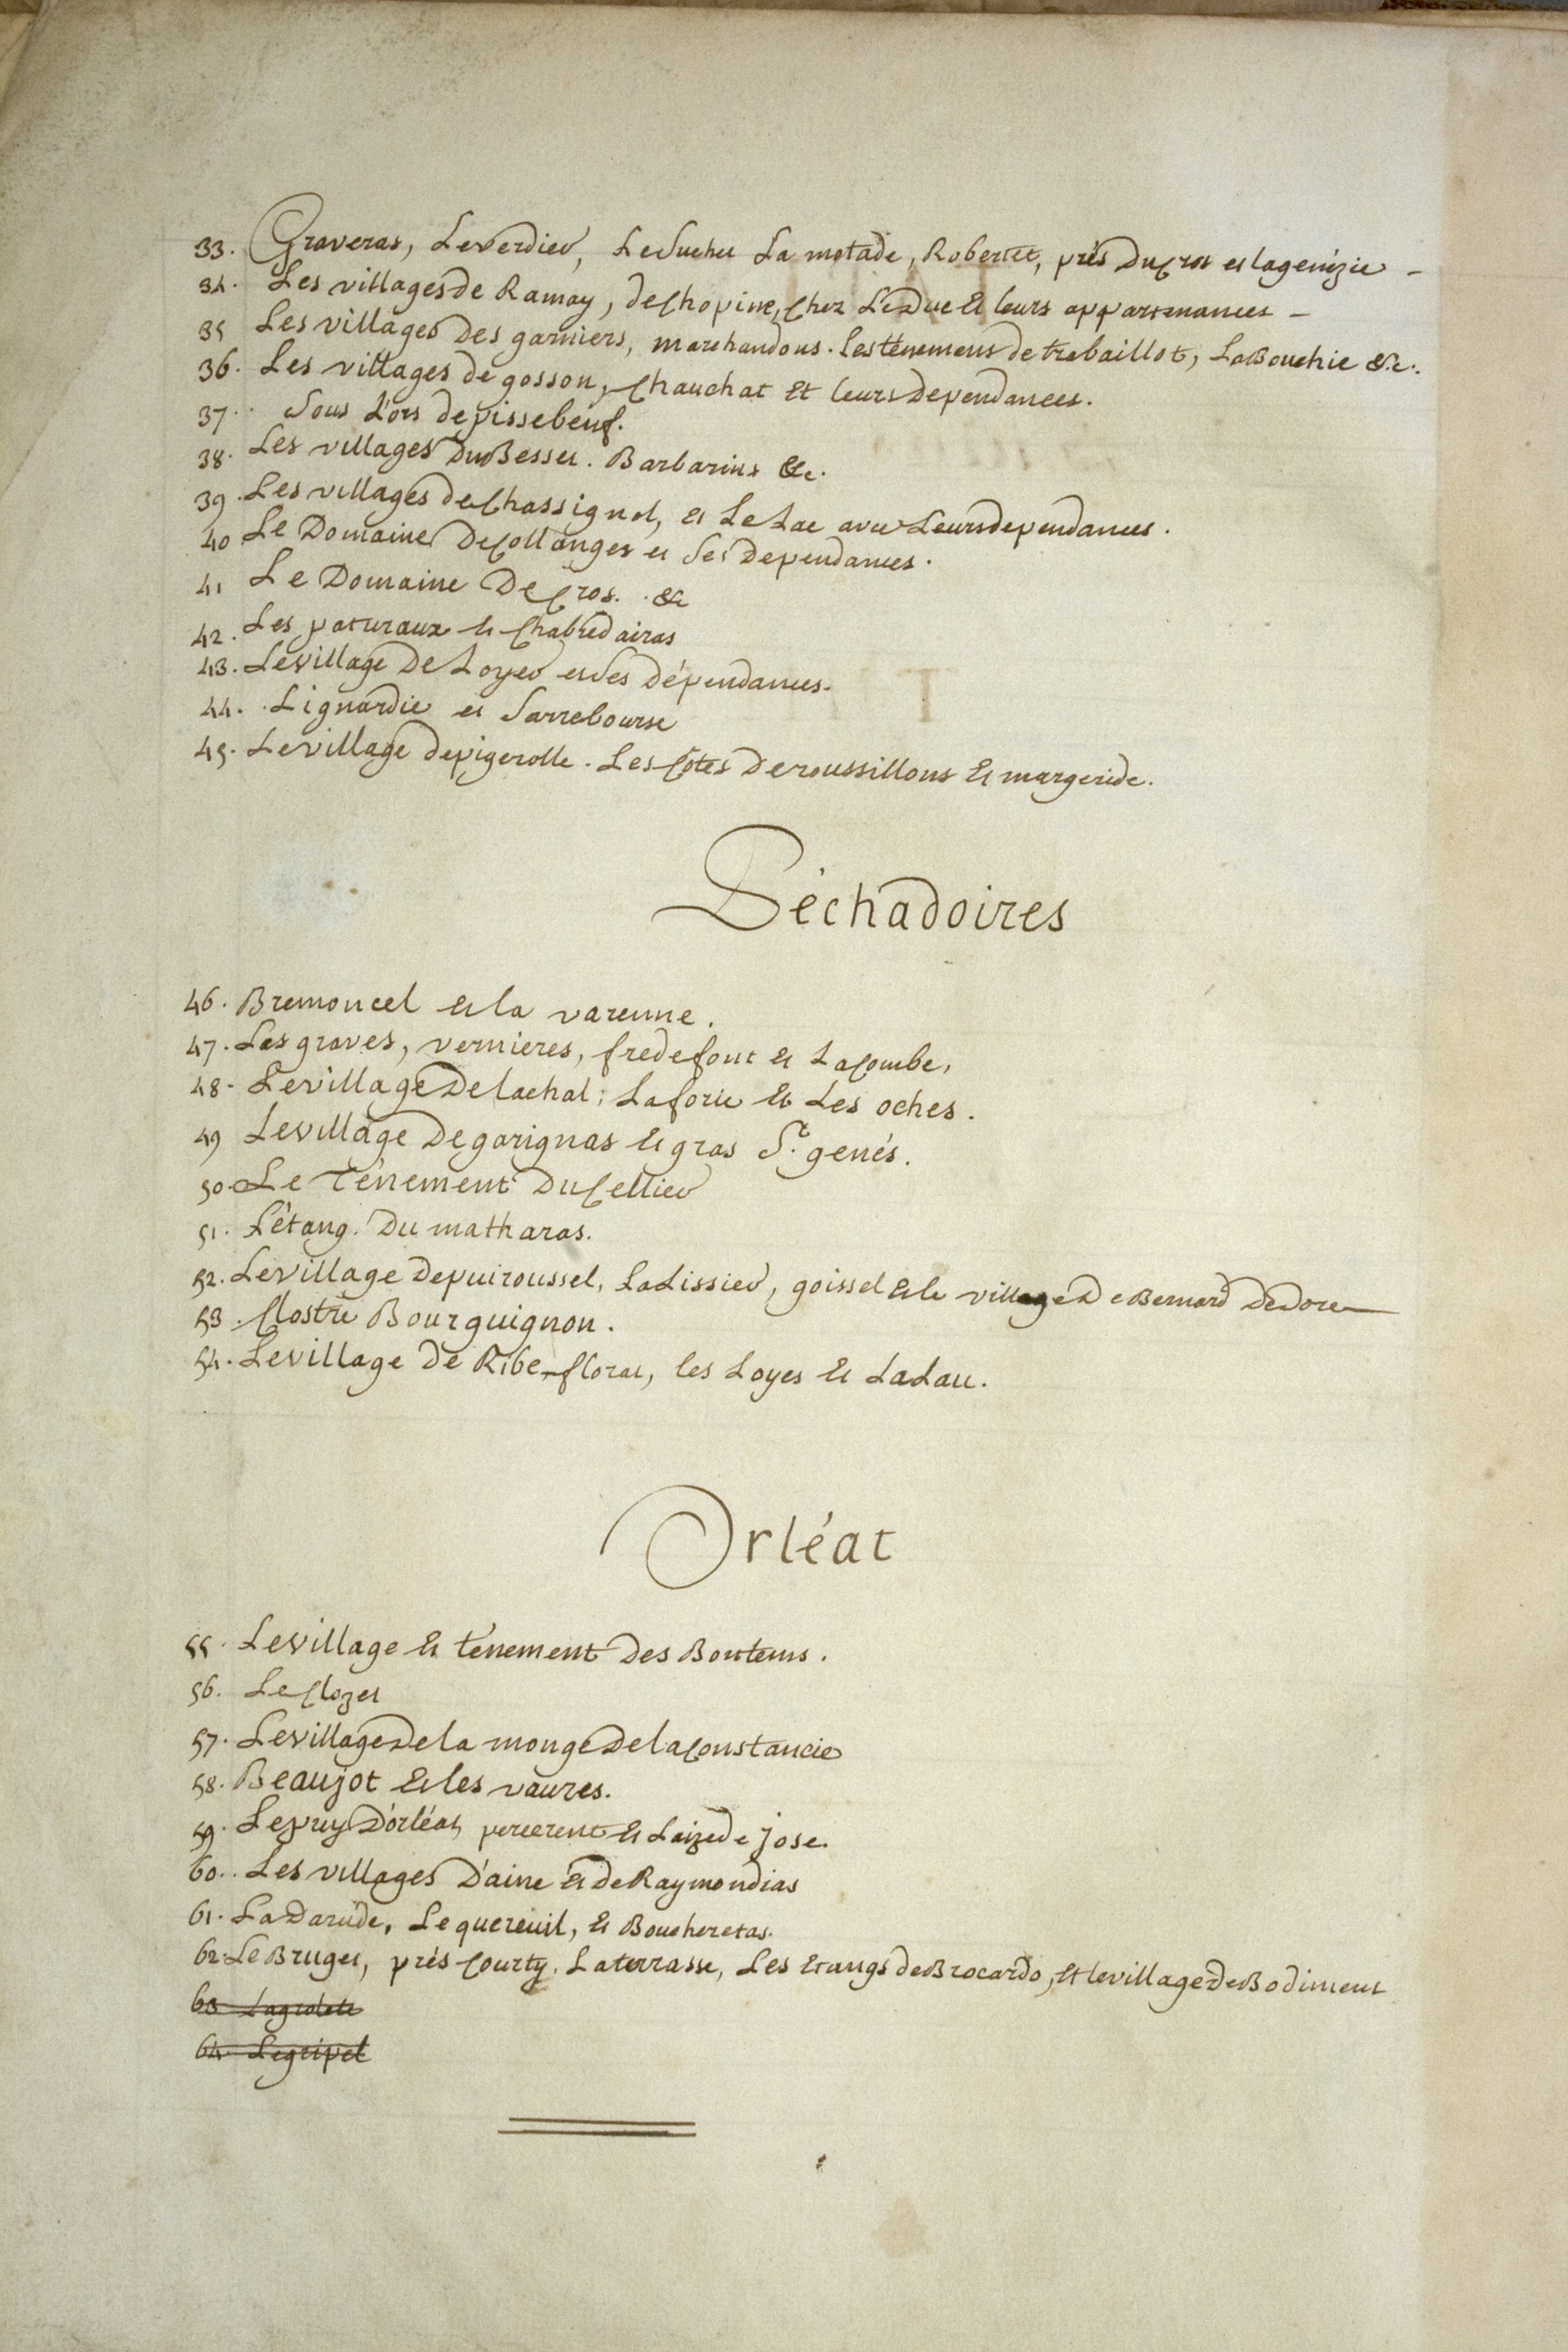 33. Graveras, Leverdier, Le Suchet La motade, Robertet, près Du Cros et lagenézie -
34. Les villages de Ramay, de Chopine, Chez Le Duc & leurs appartenances -
35 Les villages des garniers, marchandons. les tènemens de trebaillot, La Bouchie &c.
36. Les villages de gosson, Chauchat Et leurs dependances.
37. Sous L'ors de pissebeuf.
38. Les villages Du Besset. Barbarins &c.
39. Les villages de Chassignol, et Le Lac avec Leurs dependances.
40 Le Domaine De Collanges et Ses Dependances.
41 Le Domaine De Cros. &c
42. Les paturaux et Chabredairas
43. Le village De Loyer et Ses Dépendances.
44. Lignardie et Sarrebourse
45. Le village de pigerolle. Les Côtes De roussillons Et margeride.
Péchadoires
46. Bremoncel Et la varenne.
47. Les graves, vernieres, fredefont et La Combe,
48. Le village De lachal; La forie Et Les oches.
49 Le village De garignas Et gras St. genés.
50. Le Ténement Du Cellier
51. L'étang. Du matharas.
52. Le village De puiroussel, La Lissier, goissel Et le village De Bernard De Dore
53. Clostre Bourguignon.
54. Le village De Ribe-florat, les Loyes Et La Lau.
Orléat
55. Le village Et ténement Des Bontems.
56. Le Clozet
57. Le village De la monge De la Constancie
58. Beaujot Et les vaures.
59. Le puy D'orléat, percerent Et Laize de Jose.
60. Les villages D'aine Et de Raymondias
61. La Darüde, Le quereuil, Et Boucheretas.
62. Le Bruget, près Courty. La terrasse, Les Etangs de Brocardo, Et le village De Bodiment
63 Lagrolete
64. Legripel